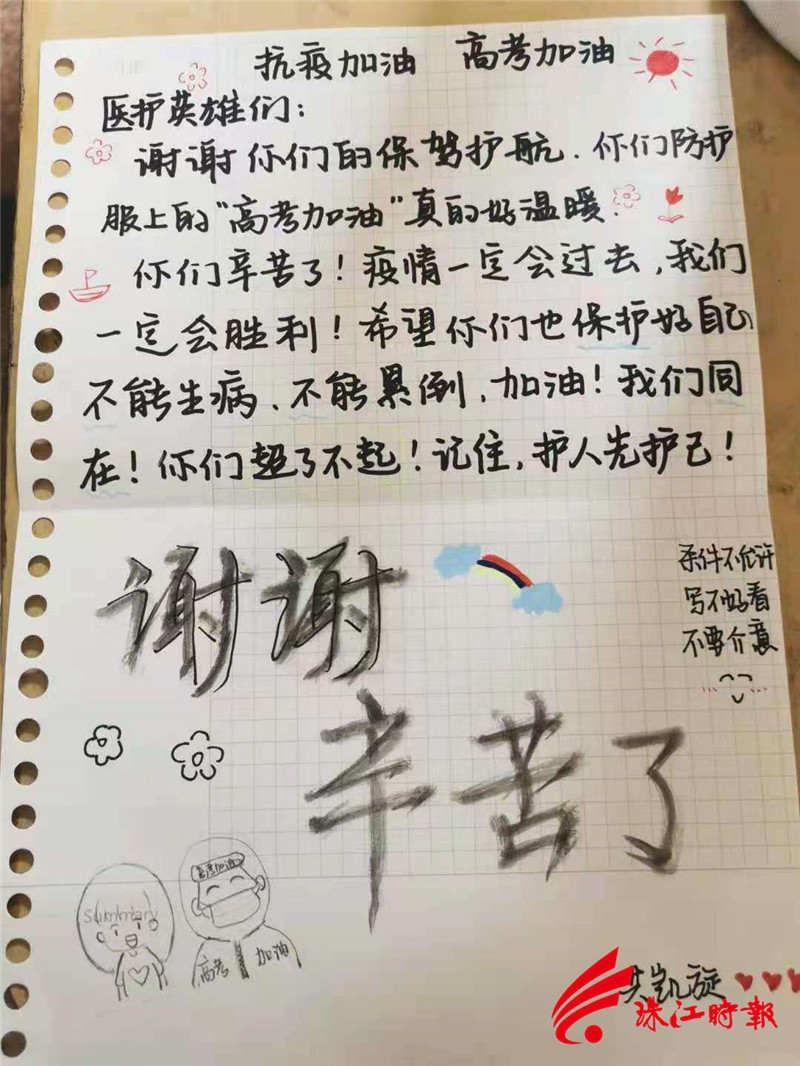 抗疫加油 高考加油
医护英雄们:
谢谢你们的保驾护航.你们防护
服上的“高考加油”真的好温暖.
你们辛苦了!疫情一定会过去,我们
一定会胜利!希望你们也保护好自己
不能生病、不能累倒,加油!我们同
在!你们超了不起!记住,护人先护己!
谢谢
条件不允许
写不好看
不要介意
辛苦了
高考加油
summary
高考 加油
凯旋
珠江時報